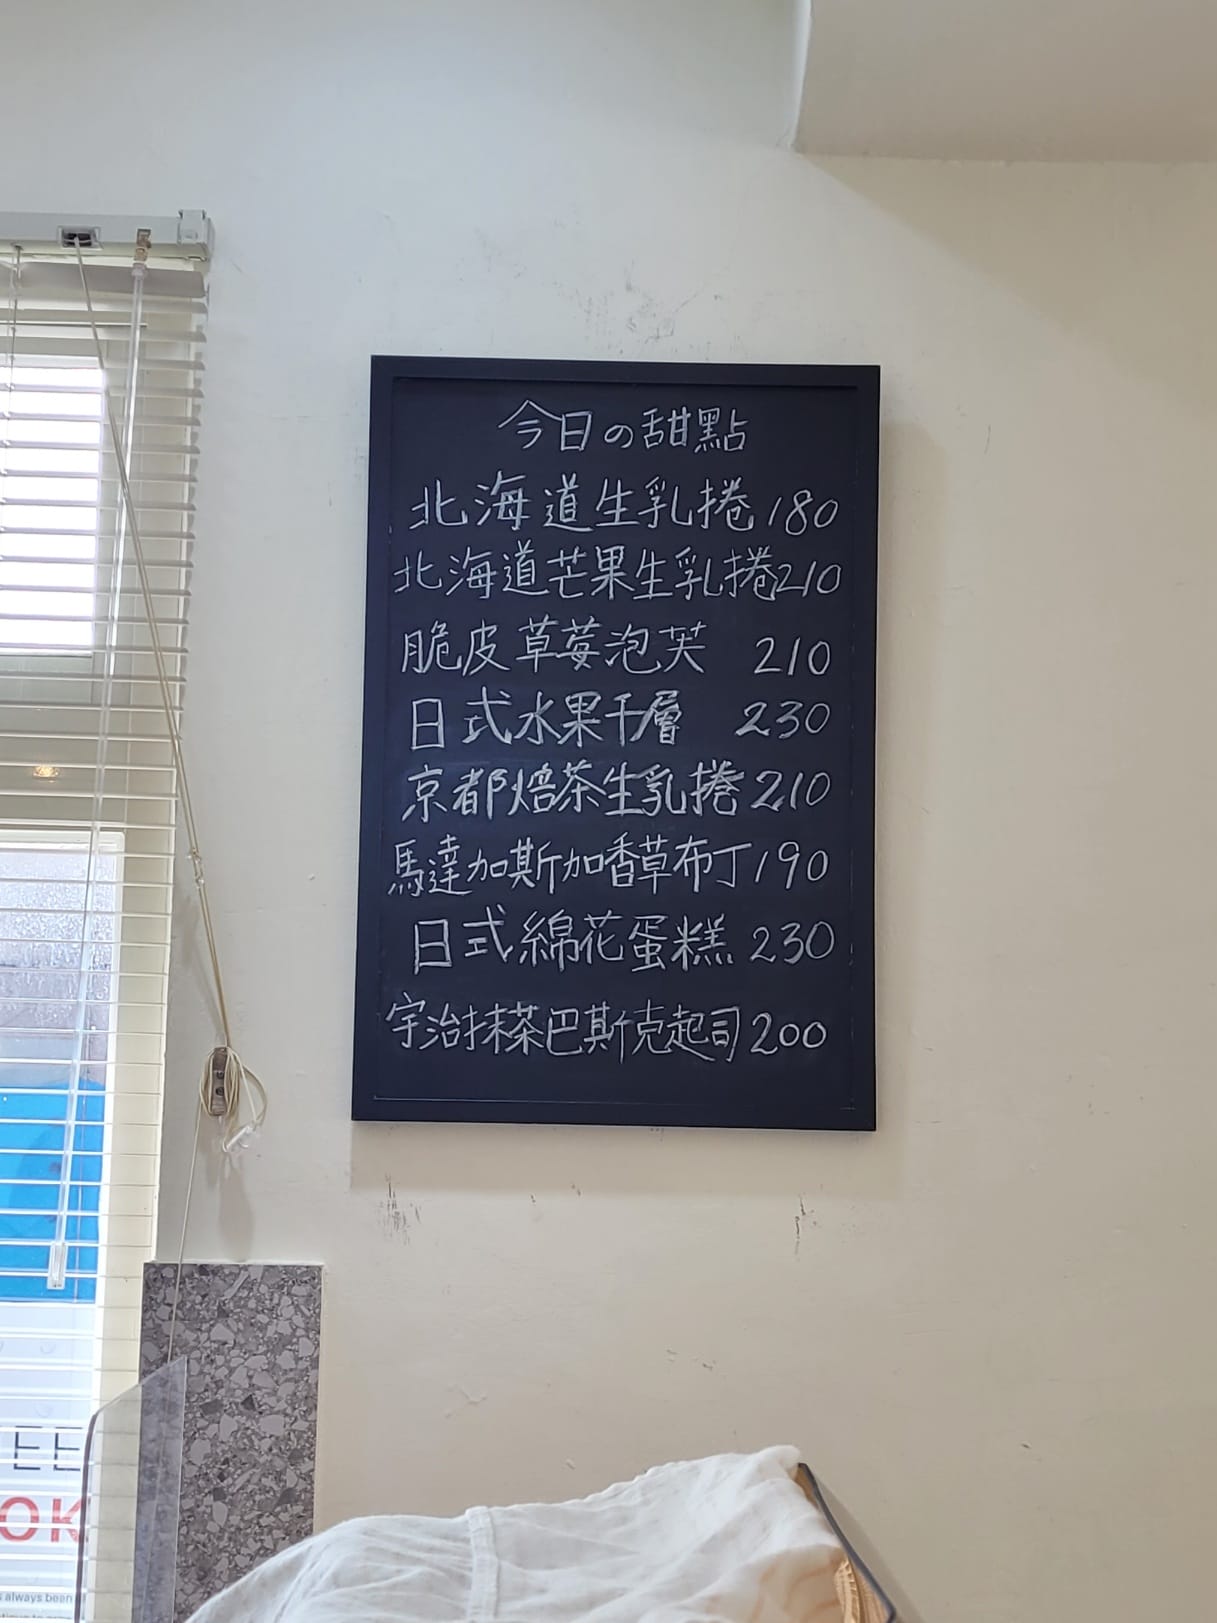 今日の甜點
北海道生乳捲 180
北海道芒果生乳捲210
脆皮草莓泡芙 210
日式水果千層 230
京都焙茶生乳捲 210
馬達加斯加香草布丁 190
日式綿花蛋糕 230
宇治抹茶巴斯克起司 200
EE
OK
always been